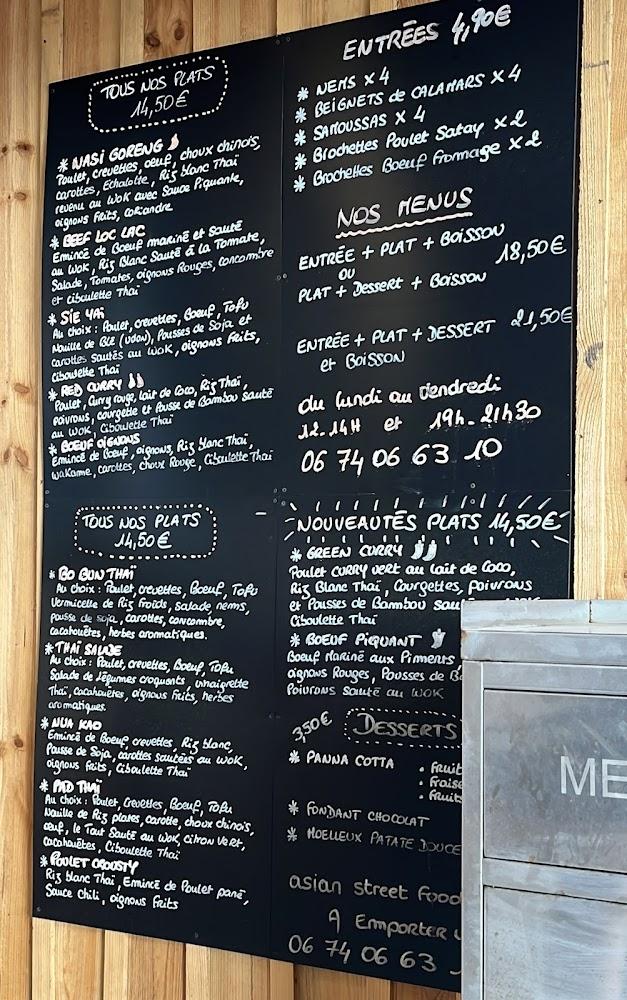 TOUS NOS PLATS
14,50€
* NASI GORENG
Poulet, crevettes, oeuf, choux chinois,
carottes, Echalotte, Riz blanc Thaï
revenu au wok avec Sauce Piquante,
oignons frits, coriandre
* BEEF LOC LAC
Emincé de Boeuf mariné et sauté
au wok, Riz Blanc Sauté à la Tomate,
Salade, Tomates, oignons Rouges, concombre
et ciboulette Thaï
* SIE YAI
Au choix : Poulet, crevettes, Boeuf, Tofu
Nouille de Blé (udon), Pousses de Soja et
carottes sautés au wok, oignons frits,
ciboulette Thaï
* RED CURRY
Poulet, Curry rouge, lait de Coco, Riz Thaï,
poivrons, courgette et Pousse de Bambou sauté
au wok, ciboulette Thaï
* BOEUF OIGNONS
Emincé de Boeuf, oignons, Riz blanc Thaï,
wakamé, carottes, choux Rouge, Ciboulette Thaï
TOUS NOS PLATS
14,50€
* BO BUN THAÏ
Au choix : Poulet, crevettes, Boeuf, Tofu
Vermicelle de Riz froids, salade, nems,
pousse de soja, carottes, concombre,
cacahouètes, herbes aromatiques.
* THAÏ SALADE
Au choix : Poulet, crevettes, Boeuf, Tofu
Salade de légumes croquants, vinaigrette
Thaï, cacahouètes, oignons frits, herbes
aromatiques.
* NUA KAO
Emincé de Boeuf, crevettes, Riz blanc,
Pousse de Soja, carottes sautées au wok,
oignons frits, Ciboulette Thaï
* PAD THAÏ
Au choix : Poulet, Crevettes, Boeuf, Tofu
Nouille de Riz plates, carotte, choux chinois,
oeuf, le Tout Sauté au wok, citron Vert,
cacahouètes, Ciboulette Thaï
* POULET CROUSTY
Riz blanc Thaï, Emincé de Poulet pané,
Sauce Chili, oignons frits
ENTRÉES 4,90€
* NEMS x 4
* BEIGNETS de CALAMARS x 4
* SAMOUSSAS x 4
* Brochettes Poulet Satay x 2
* Brochettes Boeuf Fromage x 2
NOS MENUS
ENTRÉE + PLAT + BOISSON
OU 18,50€
PLAT + Dessert + Boisson
ENTRÉE + PLAT + DESSERT 21,50€
et BOISSON
du lundi au Vendredi
12-14H et 19h-21h30
06 74 06 63 10
NOUVEAUTÉS PLATS 14,50€
* GREEN CURRY
Poulet CURRY vert au lait de Coco,
Riz Blanc Thaï, Courgettes, poivrons
et Pousses de Bambou
Ciboulette Thaï
* BOEUF PIQUANT
Boeuf Mariné aux Piments,
oignons Rouges, Pousses de
Poivrons sauté au wok
3,50€ DESSERTS
* PANNA COTTA
* FONDANT CHOCOLAT
* MOELLEUX PATATE DOUCE
asian street food
A EMPORTER
06 74 06 63
ME